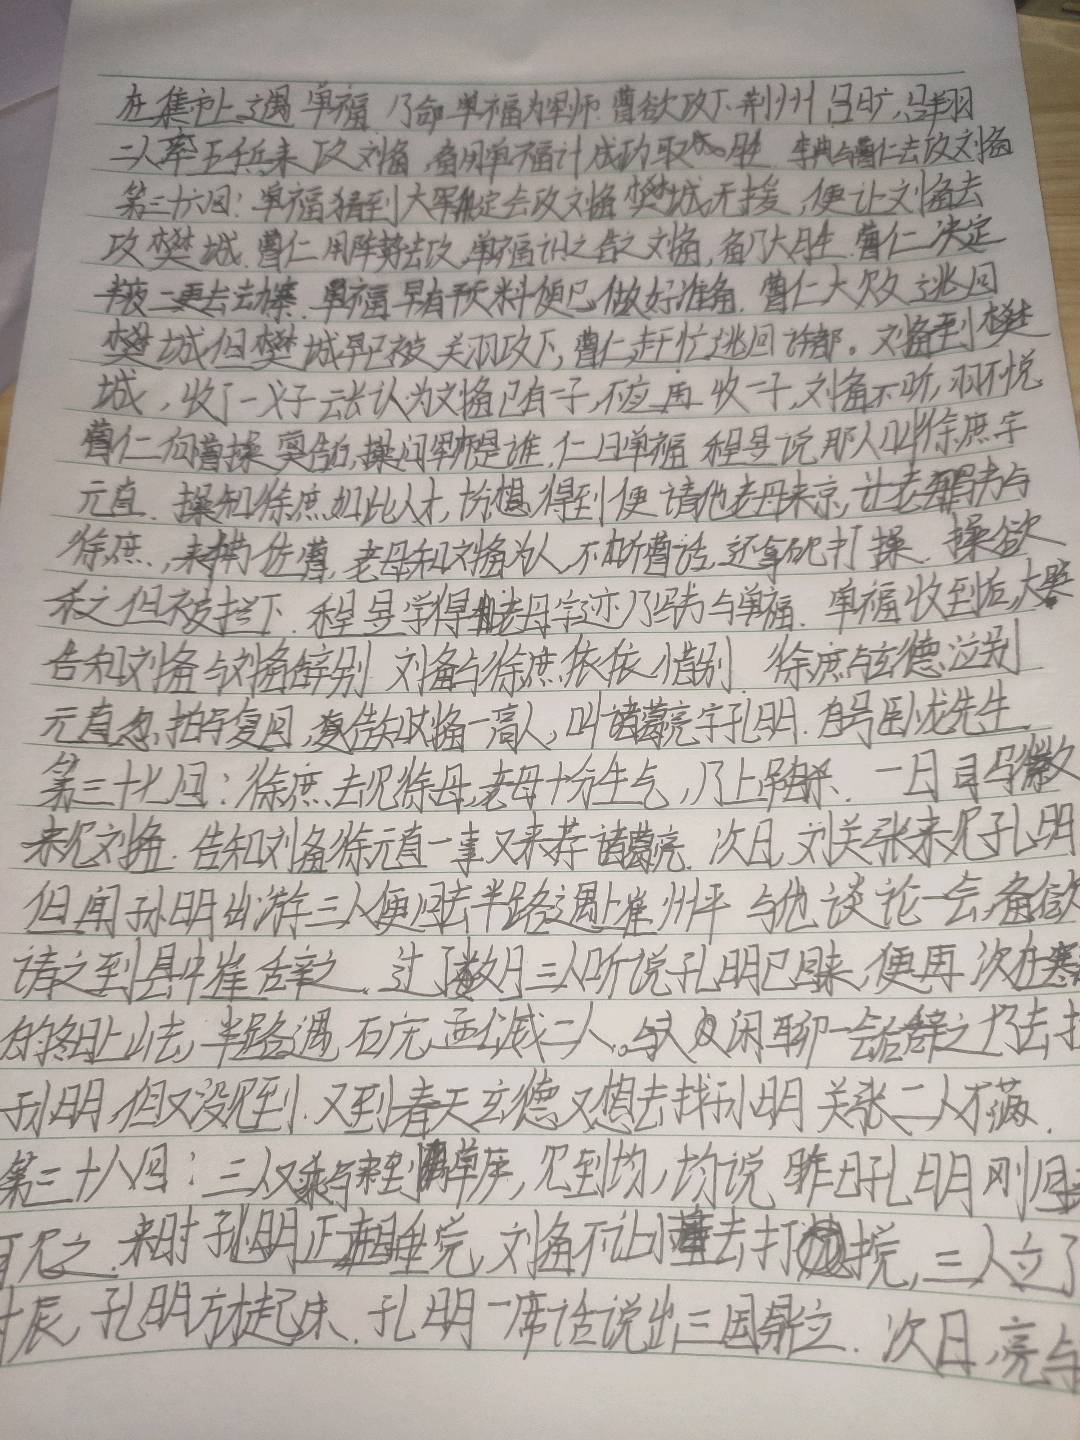 在集市上遇单福.乃命单福为军师.曹欲攻下荆州吕旷,吕翔
二人率五千兵来攻刘备,备用单福计成功取胜.李典与曹仁去攻刘备
第三十六回:单福猜到大军定会攻刘备樊城无援,便让刘备去
攻樊城.曹仁用阵势去攻,单福识之告之刘备,备乃大胜.曹仁决定
半夜二更去劫寨.单福早有预料便已做好准备.曹仁大败逃回
樊城但樊城早已被关羽攻下,曹仁赶忙逃回许都。刘备到樊
城,收了一义子云长认为刘备已有一子,不应再收一子,刘备不听,羽不悦
曹仁向曹操哭告,操问军师是谁.仁曰单福 程昱说那人叫徐庶字
元直.操知徐庶如此人才,忙想得到便请他老母来京,让老母写书与
徐庶,来佐曹,老母知刘备为人,不听曹话,还拿砚打操.操欲
杀之但被拦下.程昱学得老母字迹乃写书与单福.单福收到后,大哭
告知刘备与刘备辞别 刘备与徐庶依依惜别.徐庶与玄德泣别
元直忽拍马复回,复告知刘备一高人,叫诸葛亮字孔明.自号卧龙先生
第三十七回:徐庶去见徐母,老母十分生气,乃上吊自杀.一日司马徽
来见刘备.告知刘备徐元直一事又来荐诸葛亮.次日,刘关张来见孔明
但闻孔明出游三人便回去半路遇上崔州平与他谈论一会,备欲
请之到县中崔辞之.过了数月三人听说孔明已回来,便再次在寒
的冬日上山去,半路遇石广元孟公威二人。与人闲聊一会后辞之乃去找
孔明,但又没见到.又到春天玄德又想去找孔明关张二人不满.
第三十八回:三人又乘马来到草庐,见到均,均说昨日孔明刚回
可见之.来时孔明正在睡觉,刘备不让小童去打搅,三人立了
时辰,孔明方才起床.孔明一席话说出三国鼎立.次日,亮与